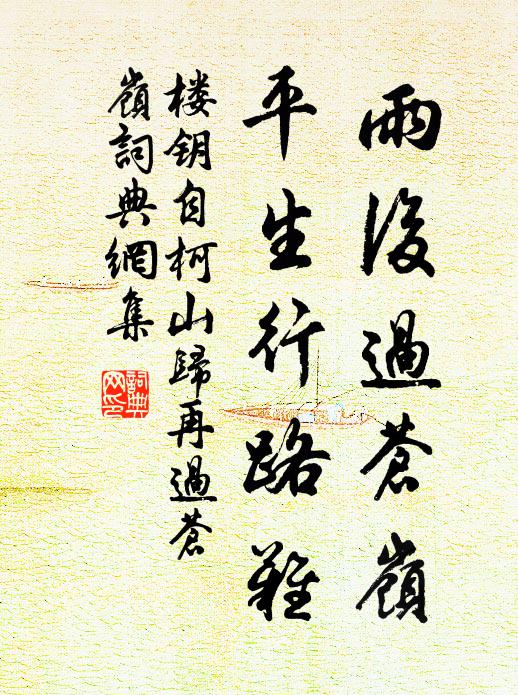 雨後過蒼嶺
平生行路難
楼钥自柯山歸再過蒼
嶺詞典網集
詞典
网印